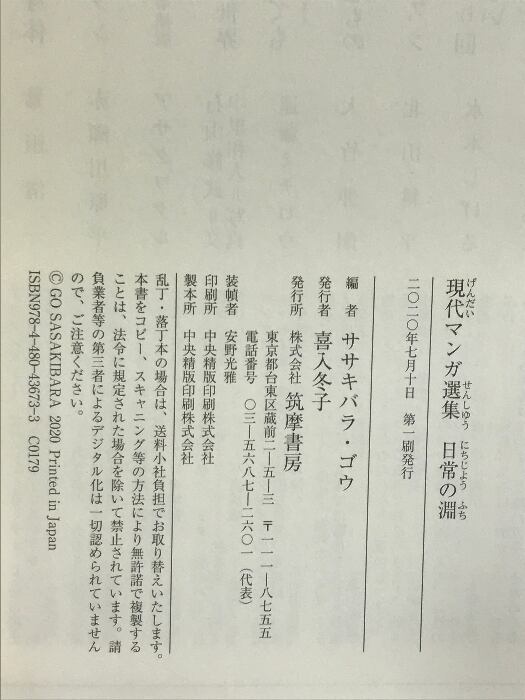 現代マンガ選集　日常の淵
げんだい　せんしゅう　にちじょう　ふち
二〇二〇年七月十日　第一刷発行
編　者　ササキバラ・ゴウ
発行者　喜入冬子
発行所　株式会社　筑摩書房
東京都台東区蔵前二―五―三　〒一一一―八七五五
電話番号　〇三―五六八七―二六〇一（代表）
装幀者　安野光雅
印刷所　中央精版印刷株式会社
製本所　中央精版印刷株式会社
乱丁・落丁本の場合は、送料小社負担でお取り替えいたします。
本書をコピー、スキャニング等の方法により無許諾で複製する
ことは、法令に規定された場合を除いて禁止されています。請
負業者等の第三者によるデジタル化は一切認められていません
ので、ご注意ください。
© GO SASAKIBARA 2020 Printed in Japan
ISBN978-4-480-43673-3　C0179